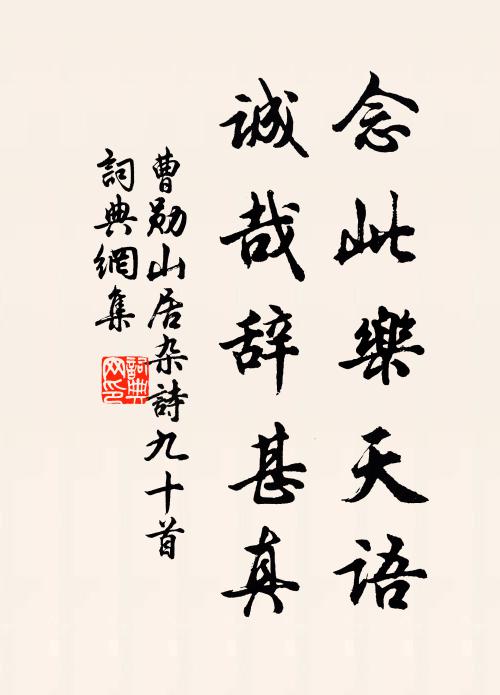 念此樂天语
诚哉辞甚真
曹勋山居杂詩九十首
詞典網集
詞典
网印